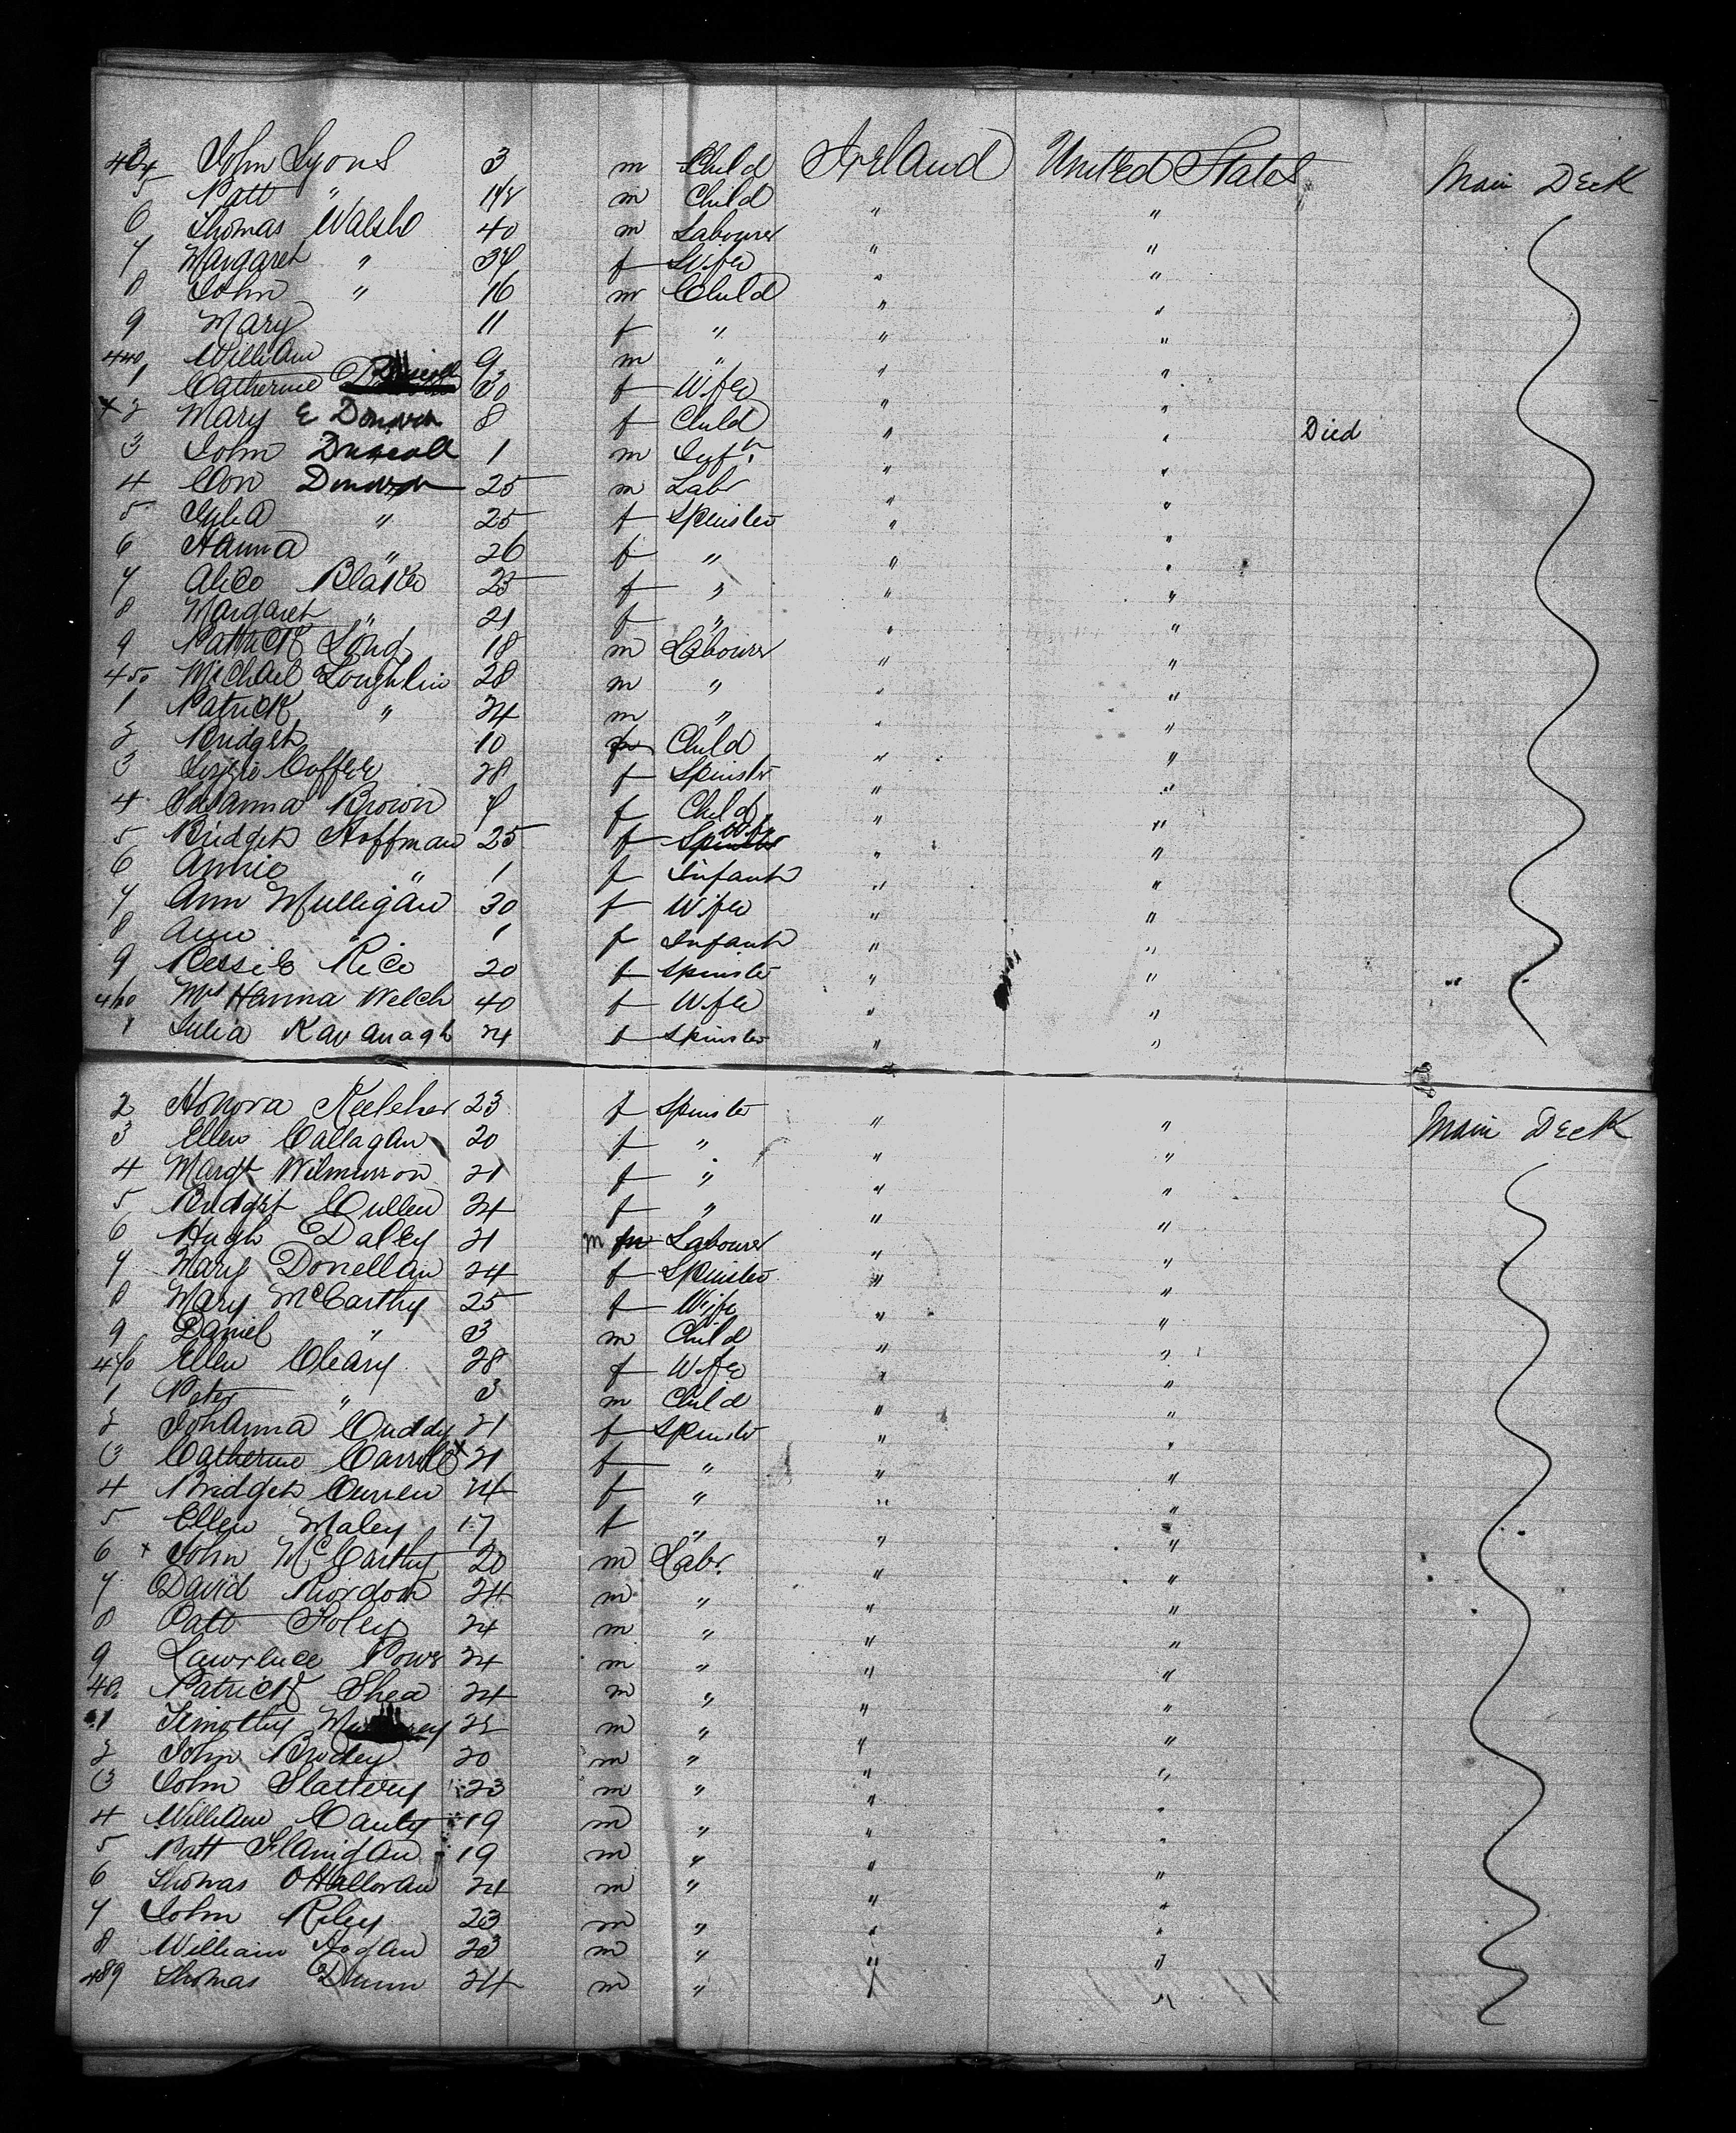 434 John Lyons 3 m Child Ireland United States Main Deck
5 Patt " m Child " "
6 Thomas Walsh 40 m Labourer " "
7 Margaret " 34 f Wife " "
8 John " 16 m Child " "
9 Mary 11 f " " "
440 William 9 m " " "
1 Catherine Driscoll 30 f Wife " "
x 2 Mary E Donovan 8 f Child " " Died
3 John Driscoll 1 m Inft. " "
4 Con Donovan 25 m Labr " "
5 Julia " 25 f Spinster " "
6 Hanna " 26 f " " "
7 Alice Blake 25 f " " "
8 Margaret " 21 f " " "
9 Patrick 18 m Labourer " "
450 Michael Loughlin 28 m " " "
1 Patrick " 24 m " " "
2 Bridget 10 f Child " "
3 Lizzie Coffee 28 f Spinster " "
4 Susanna Brown f Child " "
5 Bridget Hoffman 25 f Wife " "
6 Annie " 1 f Infant " "
7 Ann Mulligan 30 f Wife " "
8 Ann " 1 f Infant " "
9 Bessie Rice 20 f Spinster " "
460 Mrs Hanna Welch 40 f Wife " "
1 Julia Kavanagh 24 f Spinster " "
2 Honora Keeleher 23 f Spinster " " Main Deck
3 Ellen Callagan 20 f " " "
4 Margt 21 f " " "
5 Bridget Cullen 24 f " " "
6 Hugh Daley 21 m Labourer " "
7 Mary Donellan 24 f Spinster " "
8 Mary McCarthy 25 f Wife " "
9 Daniel " 3 m Child " "
470 Ellen Cleary 28 f Wife " "
1 Peter " 3 m Child " "
2 Johanna Cuddy 21 f Spinster " "
3 Catherine Carroll x 21 f " " "
4 Bridget Curren 24 f " " "
5 Ellen Maley 17 f " " "
6 x John McCarthy 20 m Labr. " "
7 David Riordon 24 m " " "
8 Patt Foley 24 m " " "
9 Lawrence Power 24 m " " "
480 Patrick Shea 24 m " " "
1 Timothy m " " "
2 John Brodey 20 m " " "
3 John Slattery 23 m " " "
4 William Canty 19 m " " "
5 Patt Flanigan 19 m " " "
6 Thomas O'Halloran 24 m " " "
7 John Riley 23 m " " "
8 William Hogan 20 m " " "
489 Thomas Dunn 24 m " " "